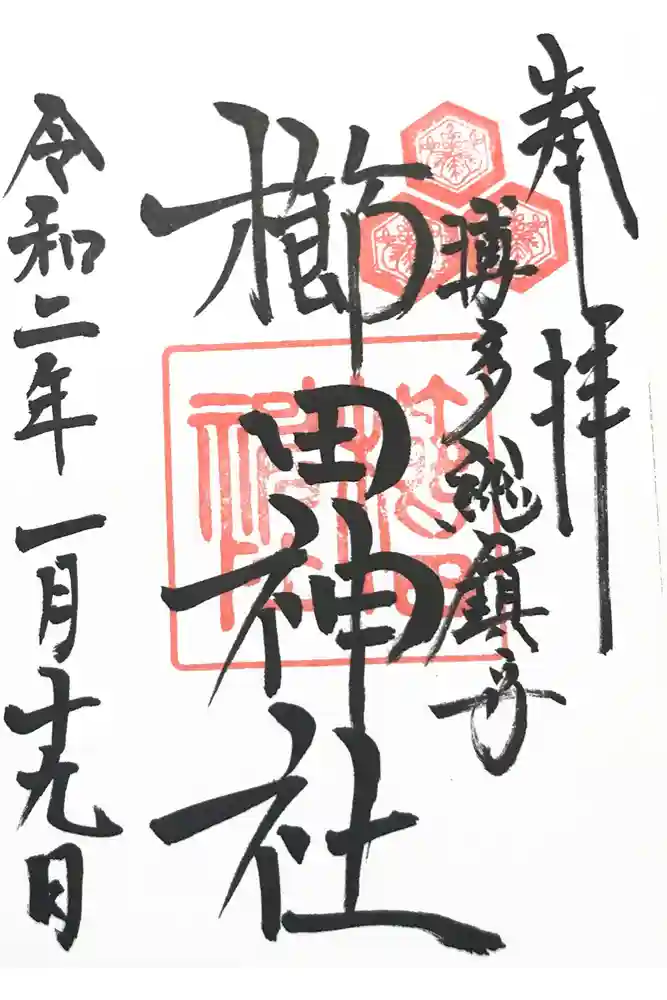 奉拝
博多総鎮守
櫛田神社
令和二年一月十九日